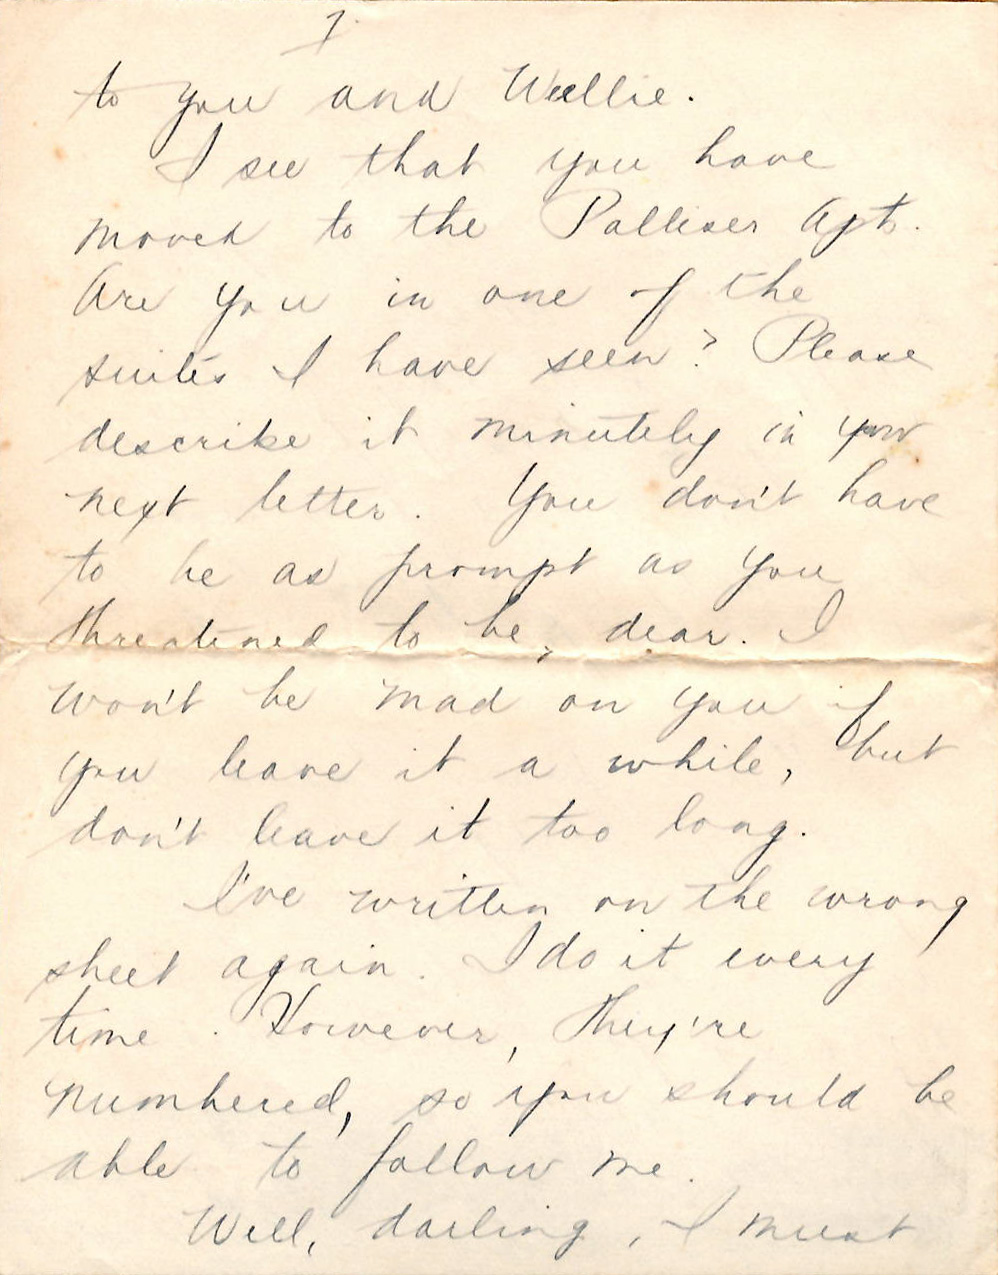 7.
to you and Willie.
I see that you have
moved to the Palliser Apt.
Are you in one of the
suites I have seen? Please
describe it minutely in your
next letter. You don't have
to be as prompt as you
threatened to be, dear. I
won't be mad on you if
you leave it a while, but
don't leave it too long.
I've written on the wrong
sheet again. I do it every
time. However, they're
numbered, so you should be
able to follow me.
Well, darling, I must